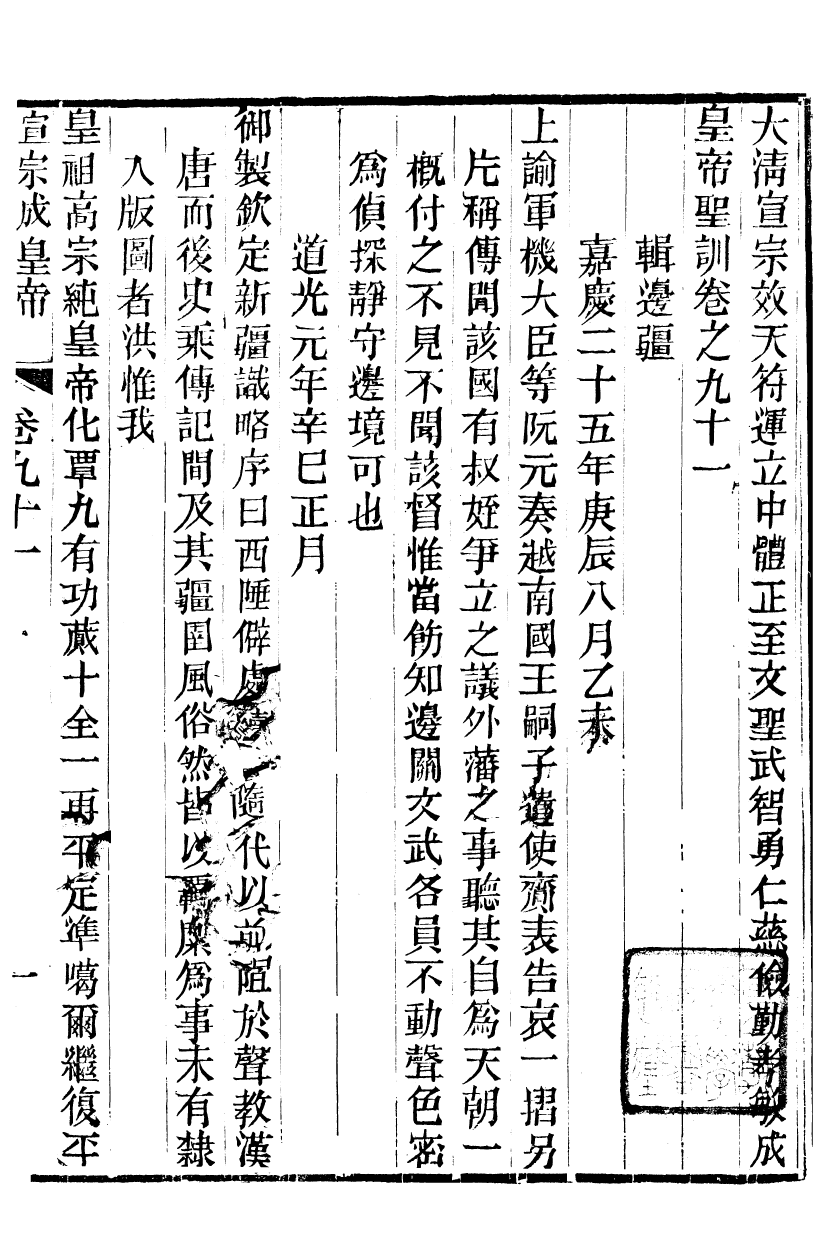 大淸宣宗效天符運立中體正至文聖武智勇仁慈儉勤孝敏成
皇帝聖訓卷之九十一
輯邊疆
嘉慶二十五年庚辰八月乙未
上諭軍機大臣等阮元奏越南國王嗣子遣使齎表告哀一摺另
片稱傳聞該國有叔姪爭立之議外藩之事聽其自爲天朝一
概付之不見不聞該督惟當飭知邊關文武各員不動聲色密
爲偵探靜守邊境可也
道光元年辛巳正月
御製欽定新疆識略序曰西陲僻處隨代以前阻於聲教漢
唐而後史乘傳記間及其疆圉風俗然皆以羈縻爲事未有隸
入版圖者洪惟我
皇祖高宗純皇帝化覃九有功蕆十全一再平定準噶爾繼復平
宣宗成皇帝 卷九十一 一